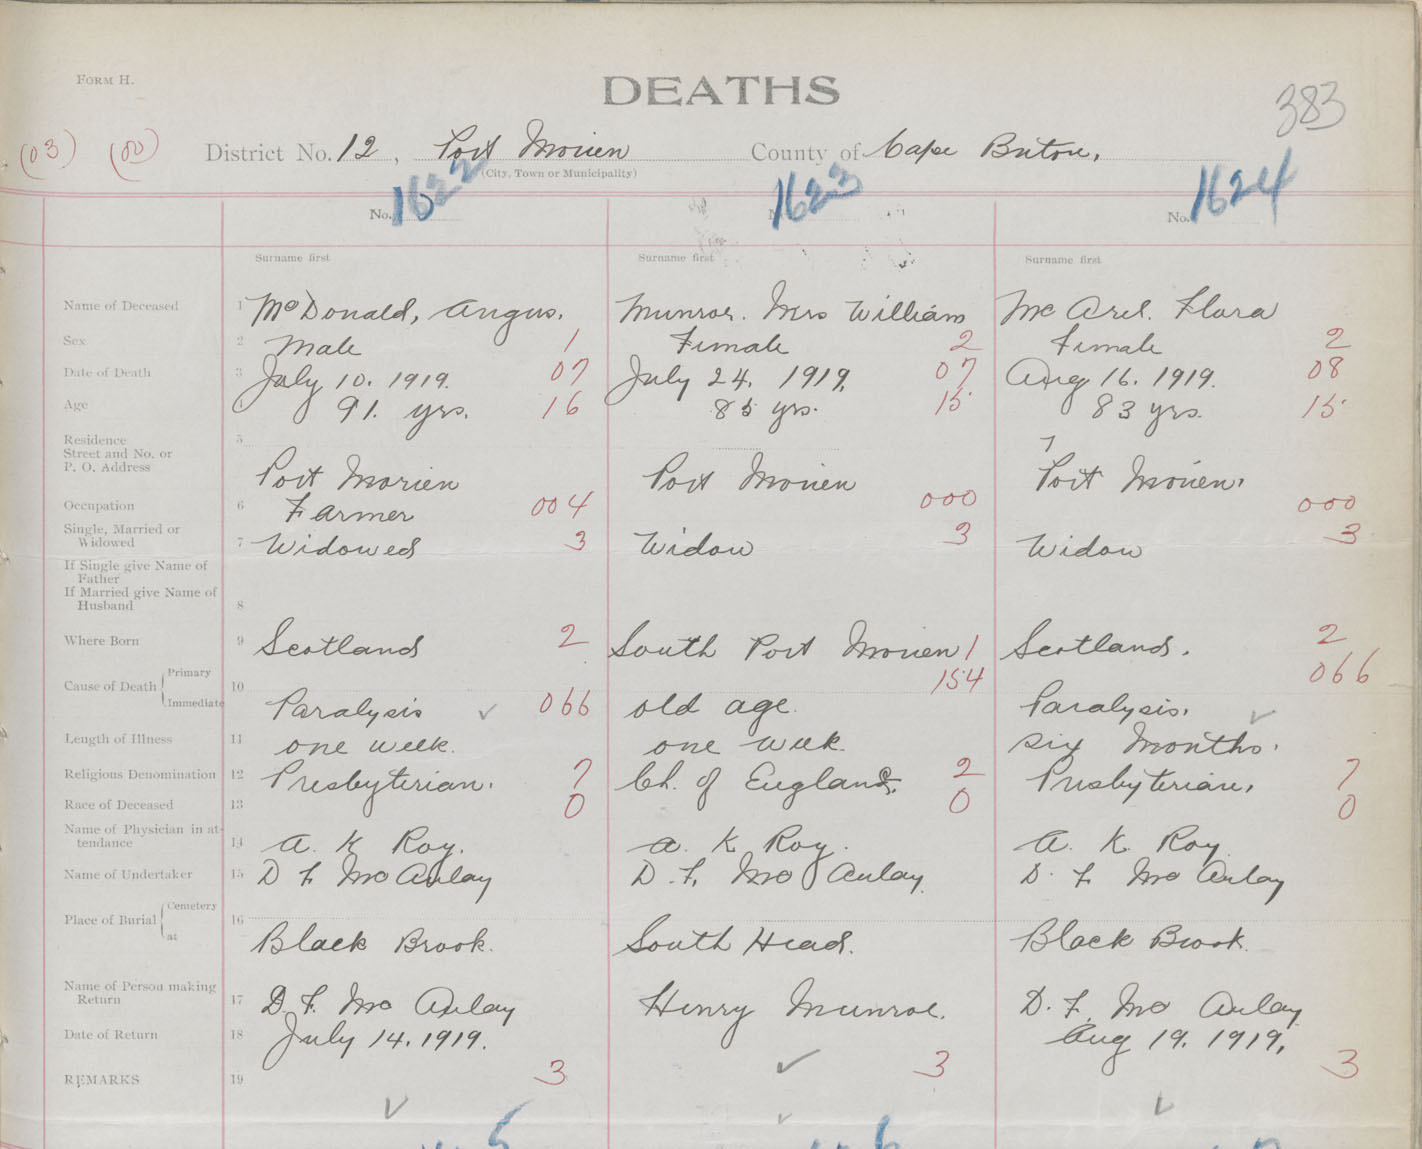 FORM H.
DEATHS
383
(03) (00) District No. 12, Port Morien County of Cape Breton.
(City, Town or Municipality)
No. 1622 1623 No. 1624
Surname first Surname first Surname first
Name of Deceased 1 McDonald, Angus. Munroe. Mrs William Mc Arel. Flora
Sex 2 Male 1 Female 2 Female 2
Date of Death 3 July 10. 1919. 07 July 24. 1919. 07 Aug 16. 1919. 08
Age 91. yrs. 16 85 yrs. 15 83 yrs. 15
Residence 5 7
Street and No. or
P. O. Address Port Morien Port Morien Port Morien.
Occupation 6 Farmer 004 000 000
Single, Married or
Widowed 7 Widowed 3 Widow 3 Widow 3
If Single give Name of
Father
If Married give Name of
Husband 8
Where Born 9 Scotland 2 South Port Morien 1 Scotland. 2
Primary 154 066
Cause of Death 10
Immediate Paralysis ✓ 066 old age. Paralysis. ✓
Length of Illness 11 one week. one week. six months.
Religious Denomination 12 Presbyterian. 7 Ch. of England. 2 Presbyterian. 7
Race of Deceased 13 0 0 0
Name of Physician in at-
tendance 14 A. K Roy. A. K Roy. A. K. Roy
Name of Undertaker 15 D F McAulay D. F. McAulay D. F McAulay
Cemetery
Place of Burial 16
at Black Brook. South Head. Black Brook.
Name of Person making
Return 17 D. F. McAulay Henry Munroe. D. F. McAulay
Date of Return 18 July 14. 1919. Aug 19. 1919.
REMARKS 19 3 ✓ 3 3
✓ ✓ ✓